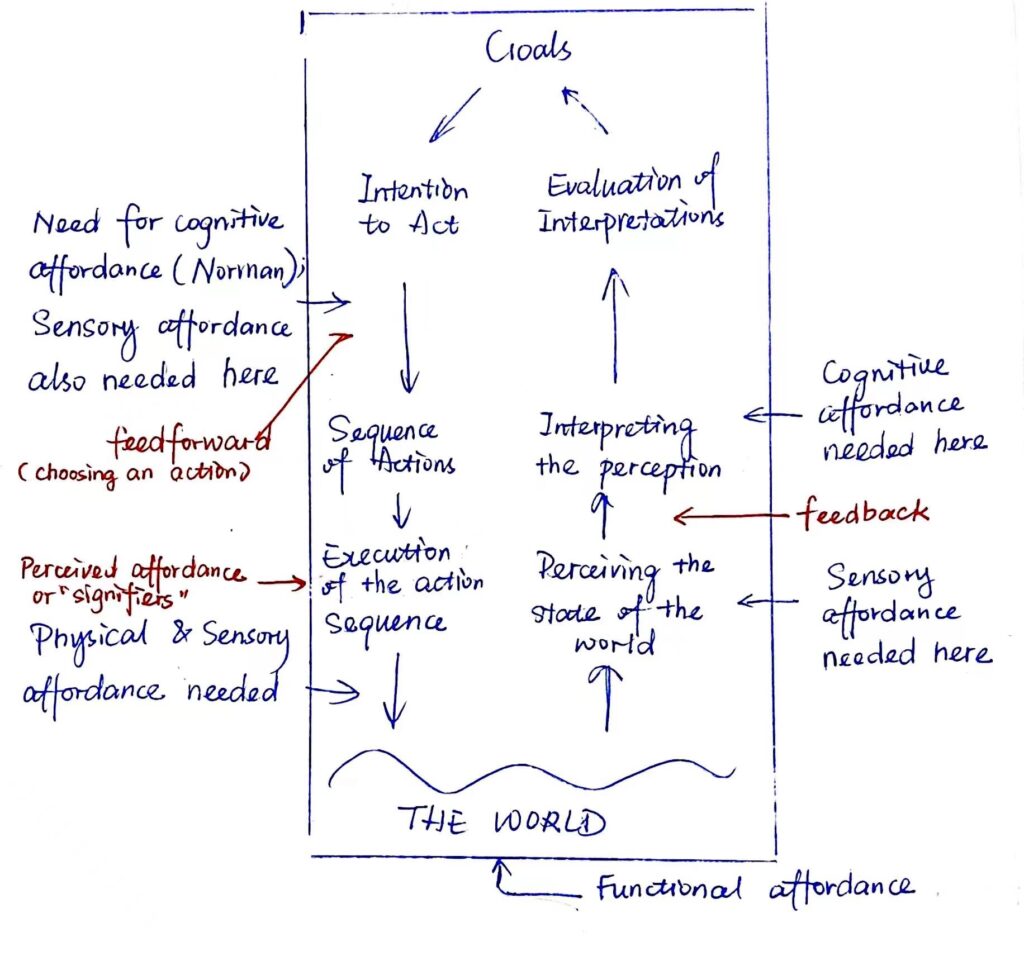 Goals
Intention
to Act
Evaluation of
Interpretations
Need for cognitive
affordance (Norman);
Sensory affordance
also needed here
feedforward
(choosing an action)
Sequence
of Actions
Interpreting
the perception
Cognitive
affordance
needed here
feedback
Perceived affordance
or "signifiers"
Physical & Sensory
affordance needed
Execution
of the action
Sequence
Perceiving the
state of the
world
Sensory
affordance
needed here
THE WORLD
Functional affordance